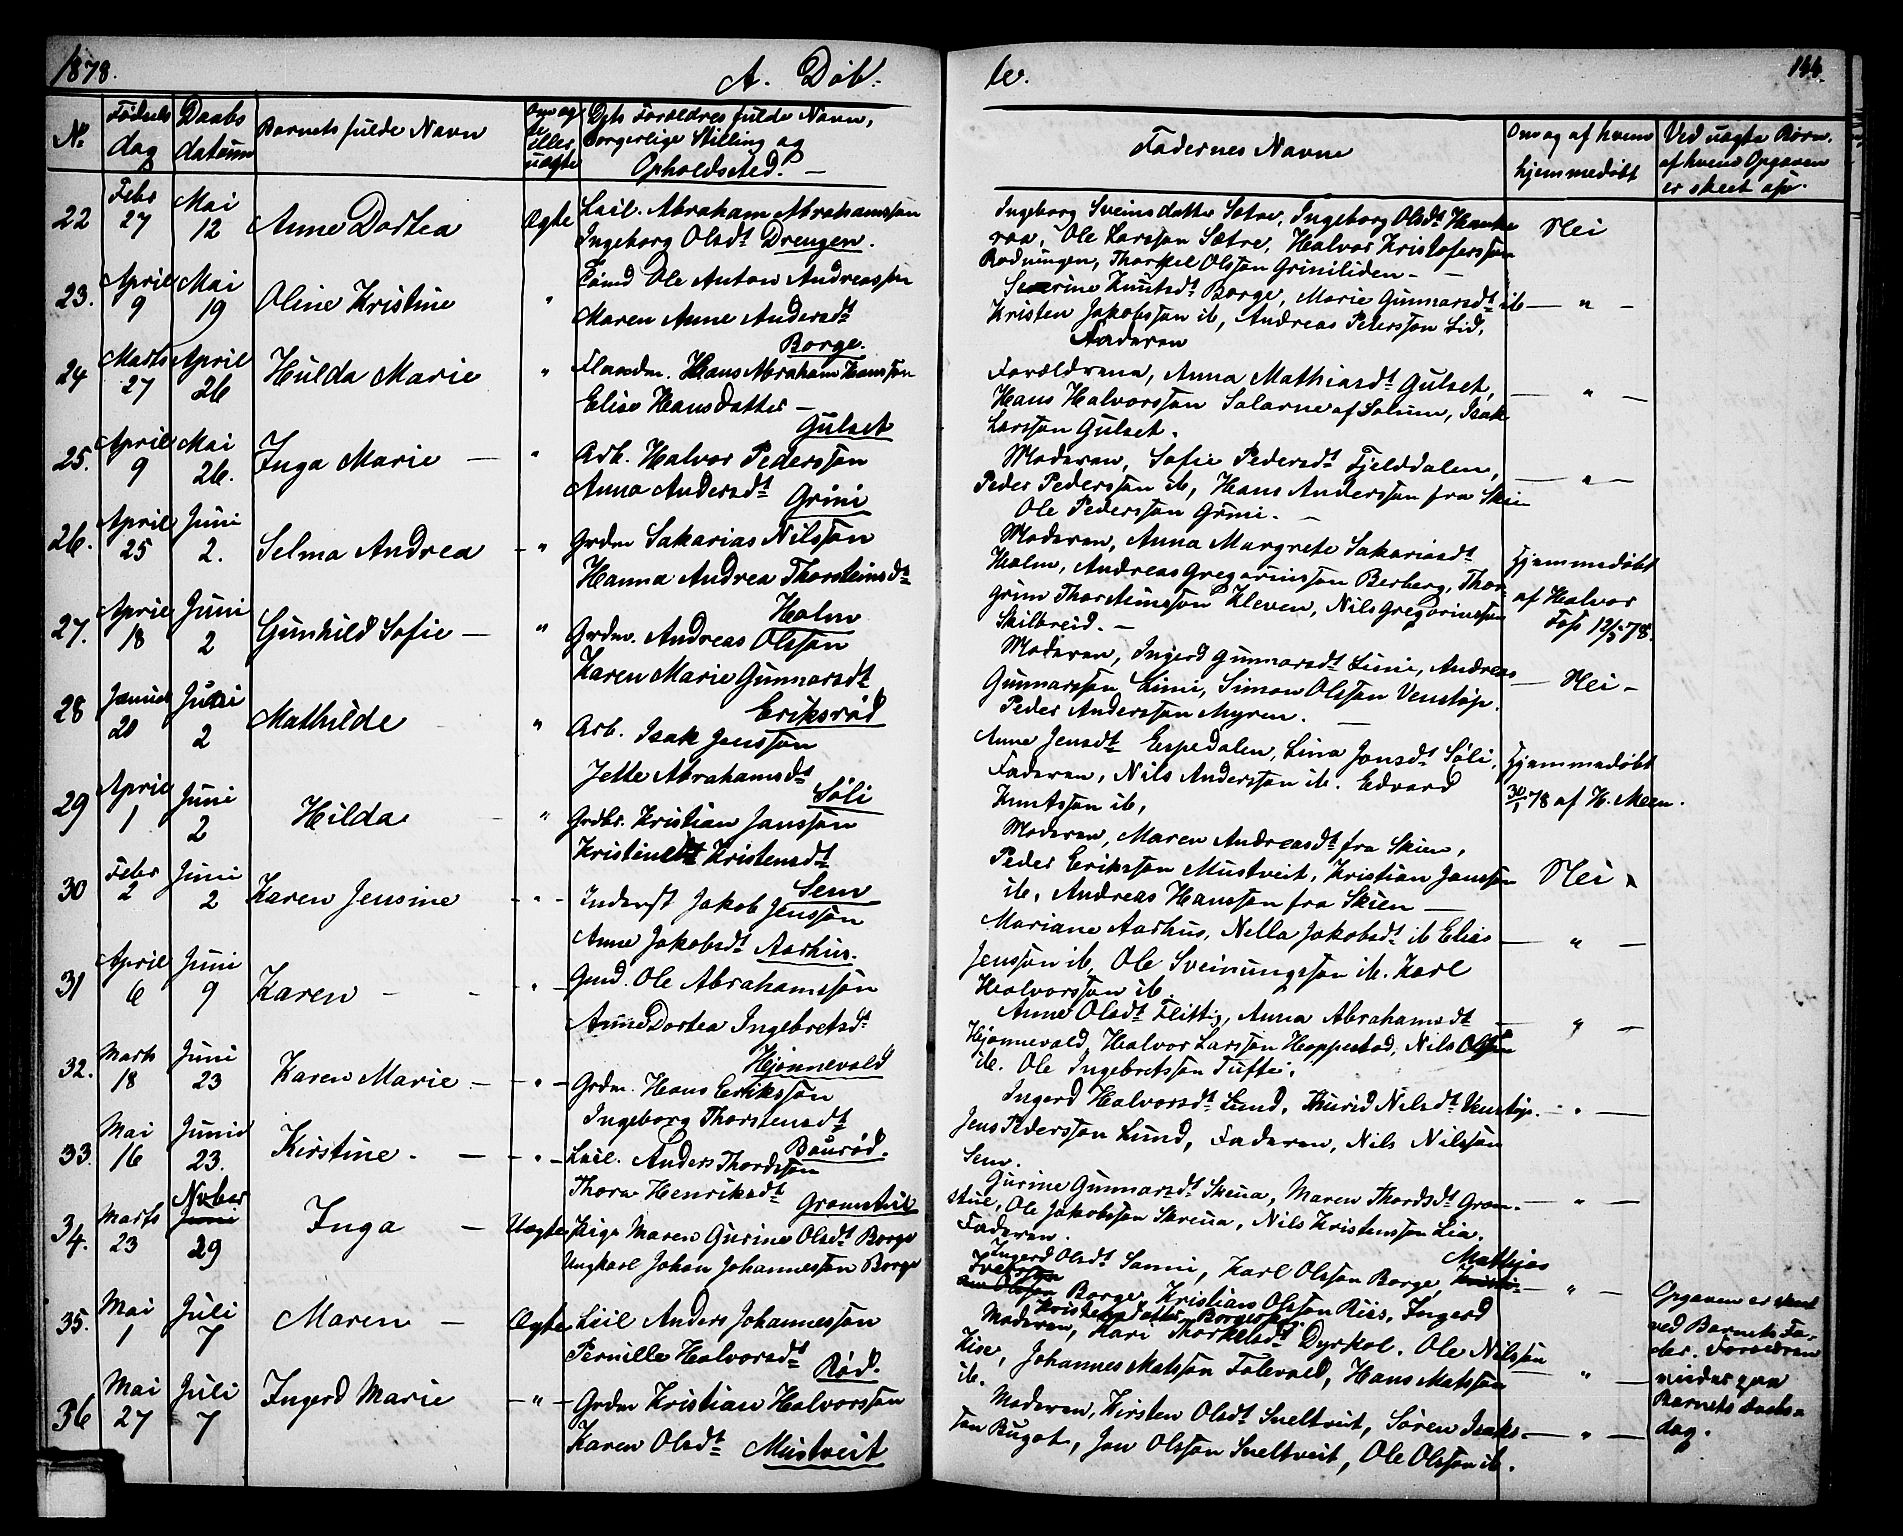 1878.
A. Døb-
te.
144.
No.
Fødsels
dag
Daabs
datum
Barnets fulde Navn
Om æg
te
eller
uægte
Dets Forældres fulde Navn,
borgerlige Stilling og
Opholdssted. —
Faddernes Navne
Om og af hvem
hjemmedøbt
Ved uægte Børn,
af hvem Opgaven
er skeet osv.
22 Febr 27 Mai 12 Anne Dortea Ægte
Leil. Abraham Abrahamssøn
Ingeborg Olsdt Drengen.
Ingeborg Sveinsdatter Sætre, Ingeborg Olsdt
Ole Larssøn Sætre, Halvor Kristoferssøn
Rødningen, Thorkel Olssøn Griniliden —
Nei
23. April 9 Mai 19 Oline Kristine "
Ole Anton Andreassøn
Maren Anne Andersdt
Borge.
Severine Knutsdt Borge, Marie Gunnarsdt ib
Kristen Jakobssøn ib, Andreas Peterssøn Lid,
Faderen
— " —
24 Marts 27 April 26 Hulda Marie "
Hans Abraham Hanssøn
Elise Hansdatter —
Gulset
Forældrene, Anna Mathiasdt Gulset,
Hans Halvorssøn Solarne af Solum, Isak
Larssøn Gulset.
— " —
25. April 9 Mai 26. Inga Marie — "
Arb. Halvor Pederssøn
Anna Andersdt Grini
Moderen, Sofie Pedersdt Fjelddalen,
Peder Pederssøn ib, Hans Anderssøn fra Skien
Ole Pederssøn Grini. —
— " —
26. April 25 Juni 2. Selma Andrea — "
Grdm Sakarias Nilssøn
Hanna Andrea Thorsteinsdt
Holm
Moderen, Anna Margrete Sakariasdt
Holm, Andreas Gregoriussøn Berberg, Thor-
grim Thorsteinssøn Kleven, Nils Gregoriussøn
Skilbreid. —
Hjemmedøbt
af Halvor
Foss 12/5 78.
27. April 18 Juni 2 Gunhild Sofie — "
Grdm. Andreas Olssøn
Karen Marie Gunnarsdt
Eriksrød
Moderen, Ingerd Gunnarsdt Limi, Andreas
Gunnarssøn Limi, Simon Olssøn Venstøp.
Peder Anderssøn Myren. —
— Nei —
28 Januar 20 Juni 2 Mathilde "
Arb. Isak Jenssøn
Jette Abrahamsdt
Søli
Anne Jensdt Espedalen, Lina Jonsdt Søli,
Faderen, Nils Anderssøn ib. Edvard
Knutssøn ib,
Hjemmedøbt
30/1 78 af H. Meen.
29 April 1 Juni 2 Hilda "
Grdbr. Kristian Janssøn
Kristine Kristensdt
Sem
Moderen, Maren Andreasdt fra Skien,
Peder Erikssøn Mustveit, Kristian Janssøn
ib, Andreas Hanssøn fra Skien —
Nei
30 Febr 2 Juni 2 Karen Jensine - " -
Inderst Jakob Jenssøn
Anne Jakobsdt Aarhus.
Mariane Aarhus, Nella Jakobsdt ib Elias
Jenssøn ib, Ole Sveinungssøn ib. Karl
Halvorssøn ib.
— " —
31 April 6 Juni 9 Karen — - " -
Ole Abrahamssøn
Anne Dortea Ingebretsdt
Hjønnevald
Anne Olsdt Flittig, Anna Abrahamsdt
Hjønnevald, Halvor Larssøn Hoppestad, Nils Olssøn
ib. Ole Ingebretssøn Tufte.
— " —
32. Marts 18 Juni 23 Karen Marie — - " -
Grdm. Hans Erikssøn
Ingeborg Thorstensdt
Baurød.
Ingerd Halvorsdt Lund, Thurid Nilsdt Venstøp.
Jens Pederssøn Lund, Faderen, Nils Nilssøn
Sem.
— " —
33. Mai 16 Juni 23. Kirstine. — - " -
Leil. Anders Thordssøn
Thora Henriksdt
Gromstul
Gurine Gunnarsdt Skrua, Maren Thordsdt Grom-
stul, Ole Jakobssøn Skreua, Nils Kristenssøn Lia.
Faderen.
— " —
34. Marts 23 Novber Juni 29 Inga — Uægte
Pige Maren Gurine Olsdt Borge
Ungkarl Johan Johannessøn Borge
Ingerd Olsdt Sanni, Karl Olssøn Borge, Mathias
Borge, Kristian Olssøn Riis, Ingerd
— " —
Opgaven er
ved Barnets Fa-
der. Forældrene
Barnets daabs-
dag.
35. Mai 1 Juli 7 Maren — Ægte
Leil Anders Johannessøn
Pernille Halvorsdt
Rød.
Moderen, Kari Thorkelsdt Dyrkol. Ole Nilssøn
Kise, Johannes Matssøn Folevald, Hans Matssøn
ib.
— " —
36 Mai 27 Juli 7 Ingerd Marie — " —
Grdm Kristian Halvorssøn
Karen Olsdt Mustveit
Moderen, Kirsten Olsdt Sneltveit, Søren Isaks-
søn Rugot, Jon Olssøn Sneltveit, Ole Olssøn ib.
— " —